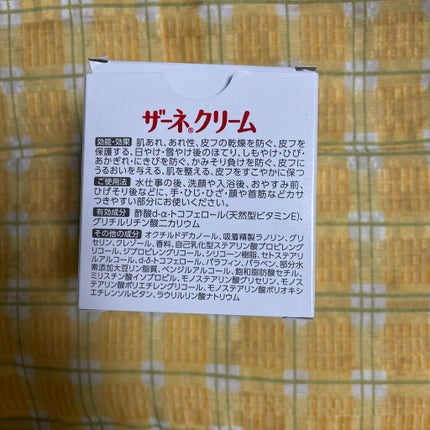 ザーネ®クリーム
効能・効果 肌あれ、あれ性、皮フの乾燥を防ぐ、皮フを
保護する、日やけ・雪やけ後のほてり、しもやけ・ひび・
あかぎれ・にきびを防ぐ、かみそり負けを防ぐ、皮フに
うるおいを与える、肌を整える、皮フをすこやかに保つ
ご使用法 水仕事の後、洗顔や入浴後、おやすみ前、
ひげそり後などに、手・ひじ・ひざ・顔や首筋などカサ
つきやすい部分にお使いください。
有効成分 酢酸d-α-トコフェロール(天然型ビタミンE)、
グリチルリチン酸二カリウム
その他の成分 オクチルドデカノール、吸着精製ラノリン、グリ
セリン、クレゾール、香料、自己乳化型ステアリン酸プロピレングリ
コール、ジプロピレングリコール、シリコーン樹脂、セトステアリ
ルアルコール、d-δ-トコフェロール、パラフィン、パラベン、部分水
素添加大豆リン脂質、ベンジルアルコール、飽和脂肪酸セチル、
ミリスチン酸イソプロピル、モノステアリン酸グリセリン、モノス
テアリン酸ポリエチレングリコール、モノステアリン酸ポリオキシ
エチレンソルビタン、ラウリルリン酸ナトリウム